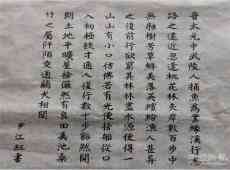 晉太元中武陵人捕魚為業緣溪行忘
路之遠近忽逢桃花林夾岸數百步中
無雜樹芳草鮮美落英繽紛漁人甚異
之復前行欲窮其林林盡水源便得一
山山有小口彷彿若有光便捨船從口
入初極狹才通人復行數十步豁然開
朗土地平曠屋舍儼然有良田美池桑
竹之屬阡陌交通雞犬相聞
江紅書